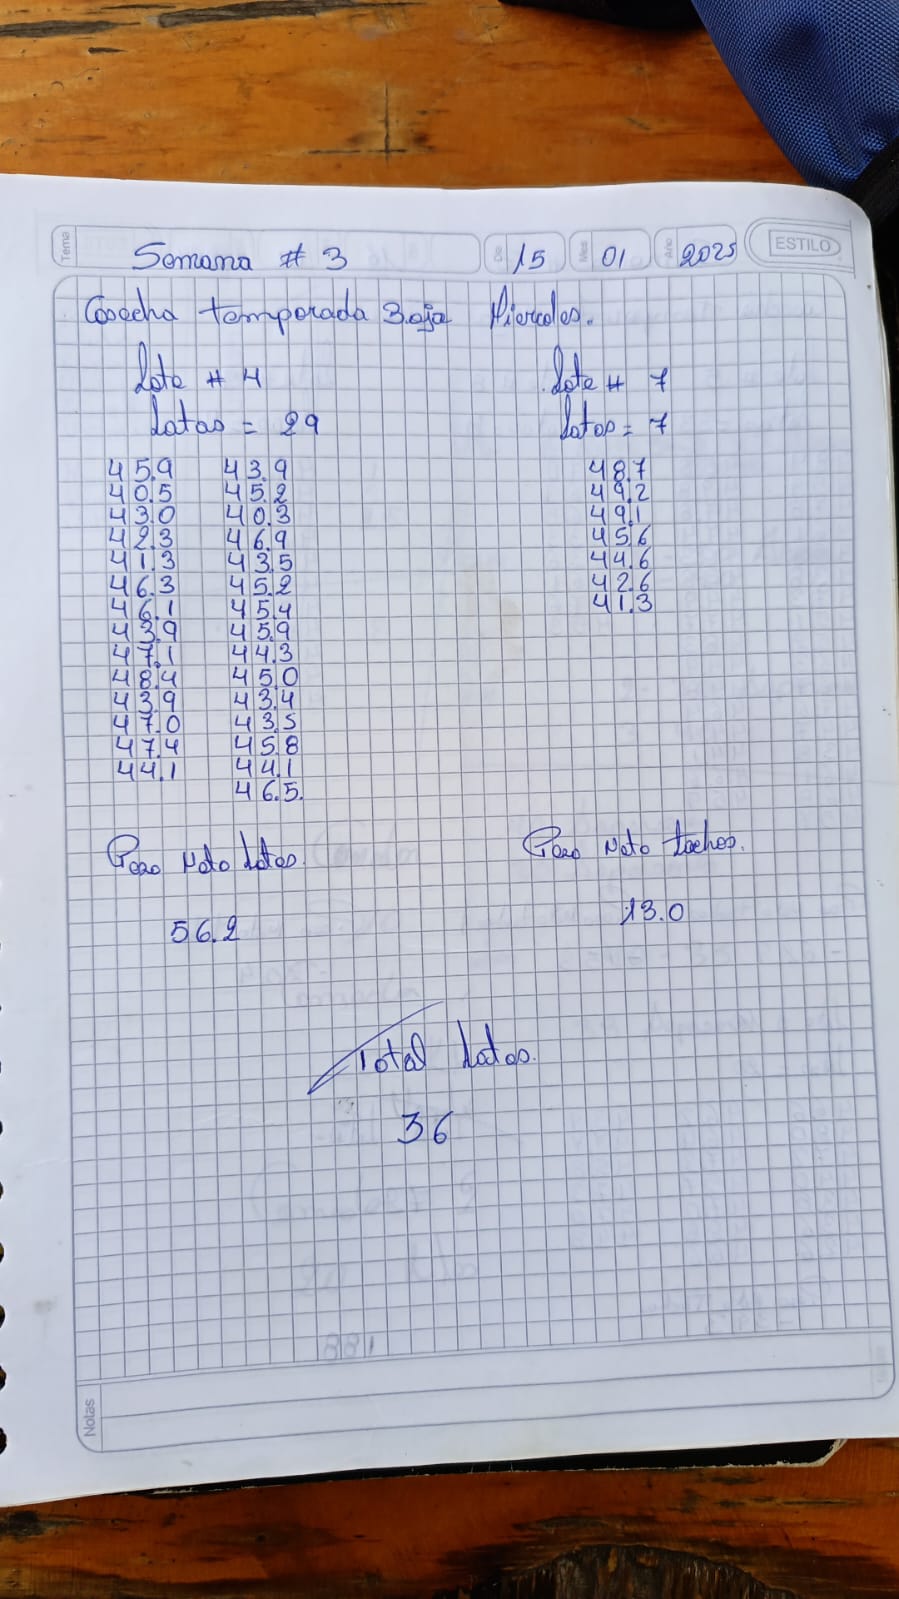 Tema
Semana # 3
Dia 15 Mes 01 Año 2025
ESTILO
Cosecha temporada Baja Miercoles.
Lote # 4
Latas = 29
45.9 43.9
40.5 45.2
43.0 40.3
42.3 46.9
41.3 43.5
46.3 45.2
46.1 45.4
43.9 45.9
47.1 44.3
48.4 45.0
43.9 43.4
47.0 43.5
47.4 45.8
44.1 44.1
46.5.
Lote # 7
Latas = 7
48.7
49.2
49.1
45.6
44.6
42.6
41.3
Peso Neto Latas.
56.2
Peso Neto tachos.
13.0
Total Latas.
36
Notas